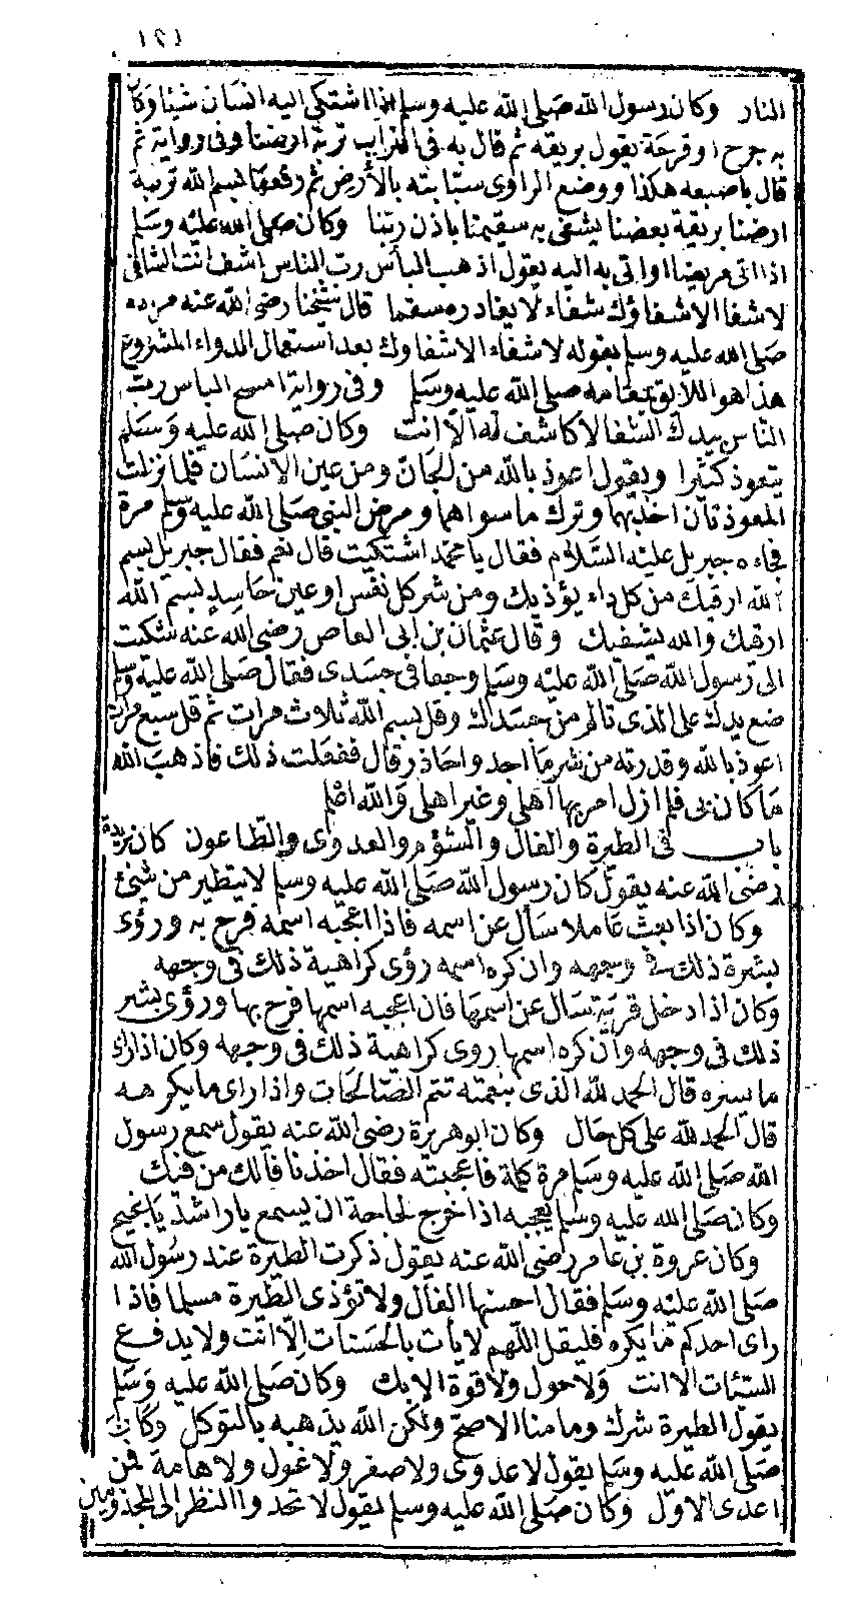 ١٢١
النار وكان رسول الله صلى الله عليه وسلم اذا اشتكى اليه انسان شيئا وكان
به جرح او قرحة يقول بريقه ثم قال به فى التراب تربة ارضنا وفى رواية ثم
قال باصبعه هكذا ووضع الراوى سبابته بالأرض ثم رفعها بسم الله تربة
ارضنا بريقة بعضنا يشفى به سقيمنا باذن ربنا وكان صلى الله عليه وسلم
اذا اتى مريضا او اتى به اليه يقول اذهب البأس رب الناس إشف انت الشافى
لا شفا الا شفاؤك شفاء لا يغادره سقما قال شيخنا رضى الله عنه مراده
صلى الله عليه وسلم بقوله لا شفاء الا شفاوك بعد استعمال الدواء المشروع
هذا هو اللائق بمقامه صلى الله عليه وسلم وفى رواية امسح الباس رب
الناس بيدك الشفا لا كاشف له الا انت وكان صلى الله عليه وسلم
يتعوذ كثيرا ويقول اعوذ بالله من الجان ومن عين الانسان فلما نزلت
المعوذتان اخذ بهما وترك ما سواهما ومرض النبى صلى الله عليه وسلم مرة
فجاءه جبريل عليه السلام فقال يا محمد اشتكيت قال نعم فقال جبريل بسم
الله ارقيك من كل داء يؤذيك ومن شر كل نفس او عين حاسد بسم الله
ارقيك والله يشفيك وقال عثمان بن ابى العاص رضى الله عنه شكيت
الى رسول الله صلى الله عليه وسلم وجعا فى جسدى فقال صلى الله عليه وسلم
ضع يدك على الذى تالم من جسدك وقل بسم الله ثلاث مرات ثم قل سبع مرات
اعوذ بالله وقدرته من شر ما اجد واحاذر قال ففعلت ذلك فاذهب الله
ما كان بى فلم ازل امر بها اهلى وغير اهلى والله اعلم
باب فى الطيرة والفال والشؤم والعدوى والطاعون كان بريدة
رضى الله عنه يقول كان رسول الله صلى الله عليه وسلم لا يتطير من شئ
وكان اذا بعث عاملا سأل عن اسمه فاذا اعجبه اسمه فرح به ورؤى
بشرة ذلك فى وجهه وان كره اسمه رؤى كراهية ذلك فى وجهه
وكان اذا دخل قرية سأل عن اسمها فان اعجبه اسمها فرح بها ورؤى بشر
ذلك فى وجهه وأن كره اسمها روى كراهية ذلك فى وجهه وكان اذا راى
ما يسره قال الحمد لله الذى بنعمته تتم الصالحات واذا راى ما يكرهه
قال الحمد لله على كل حال وكان ابو هريرة رضى الله عنه يقول سمع رسول
الله صلى الله عليه وسلم مرة كلمة فاعجبته فقال اخذنا فالك من فيك
وكان صلى الله عليه وسلم يعجبه اذا خرج لحاجة ان يسمع يا راشد يا نجيح
وكان عروة بن عامر رضى الله عنه يقول ذكرت الطيرة عند رسول الله
صلى الله عليه وسلم فقال احسنها الفال ولا تؤذى الطيرة مسلما فاذا
راى احدكم ما يكره فليقل اللهم لا يأت بالحسنات إلا انت ولا يدفع
السيئات الا انت ولا حول ولا قوة الا بك وكان صلى الله عليه وسلم
يقول الطيرة شرك وما منا الا صح ولكن الله يذهبه بالتوكل وكان
صلى الله عليه وسلم يقول لا عدوى ولا صفر ولا غول ولا هامة فمن
اعدى الاول وكان صلى الله عليه وسلم يقول لا تحدوا النظر الى المجذومين